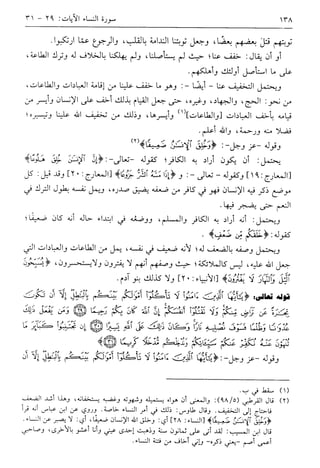 ١٣٨ سورة النساء الآيات: ٢٩ - ٣١
توبتهم قتل بعضهم بعضًا، وجعل توبتنا الندامة بالقلب، والرجوع عمّا ارتكبوا.
أو أن يقال: خفف عنا؛ حيث لم يستأصلنا، ولم يهلكنا بالخلاف له وترك الطاعة،
على ما استأصل أولئك وأهلكهم.
ويحتمل التخفيف عنا - أيضًا -: وهو ما خفف علينا من إقامة العبادات والطاعات،
من نحو: الحج، والجهاد، وغيره، حتى جعل القيام بذلك أخف على الإنسان وأيسر من
قيامه بأخف العبادات [والطاعات](١) وأيسرها، وذلك من تخفيف الله علينا وتيسيره؛
فضلا منه ورحمة، والله أعلم.
وقوله - عز وجل -: ﴿وَخُلِقَ الْإِنسَنُ ضَعِيفًا﴾(٢)
يحتمل: أن يكون أراد به الكافر؛ كقوله - تعالى -: ﴿إِنَّ الْإِنسَنَ خُلِقَ هَلُوعًا﴾
[المعارج: ١٩] وكقوله - تعالى -: ﴿إِذَا مَسَّهُ الشَّرُّ جَزُوعًا﴾ [المعارج: ٢٠] وقد قيل: كل
موضع ذكر فيه الإنسان فهو في كافر من ضعفه يضيق صدره، ويمل نفسه بطول الترك في
النعم حتى يضجر فيها.
ويحتمل: أنه أراد به الكافر والمسلم، ووصْفه في ابتداء حاله أنه كان ضعيفًا؛
كقوله: ﴿خَلَقَكُم مِّن ضَعْفٍ﴾.
ويحتمل وصفه بالضعف له؛ لأنه ضعيف في نفسه، يمل من الطاعات والعبادات التي
جعل الله عليه، ليس كالملائكة؛ حيث وصفهم أنهم لا يفترون ولا يستحسرون، ﴿يُسَبِّحُونَ
الَّيْلَ وَالنَّهَارَ لَا يَفْتُرُونَ﴾ [الأنبياء: ٢٠] ولا كذلك بنو آدم.
قوله تعالى: ﴿يَأَيُّهَا الَّذِينَ ءَامَنُوا لَا تَأْكُلُوا أَمْوَلَكُم بَيْنَكُم بِالْبَطِلِ إِلَّا أَن تَكُونَ
تِجَرَةً عَن تَرَاضٍ مِّنكُمْ وَلَا تَقْتُلُوا أَنفُسَكُمْ إِنَّ اللَّهَ كَانَ بِكُمْ رَحِيمًا وَمَن يَفْعَلْ ذَلِكَ
عُدْوَنًا وَظُلْمًا فَسَوْفَ نُصْلِيهِ نَارًا وَكَانَ ذَلِكَ عَلَى اللَّهِ يَسِيرًا إِن تَجْتَنِبُوا كَبَائِرَ مَا
تُنْهَوْنَ عَنْهُ نُكَفِّرْ عَنكُمْ سَيِّئَاتِكُمْ وَنُدْخِلْكُم مُّدْخَلًا كَرِيمًا﴾
وقوله - عز وجل -: ﴿يَأَيُّهَا الَّذِينَ ءَامَنُوا لَا تَأْكُلُوا أَمْوَلَكُم بَيْنَكُم بِالْبَطِلِ إِلَّا أَن
(١) سقط في ب.
(٢) قال القرطبي (٩٨/٥): والمعنى أن هواه يستميله وشهوته وغضبه يستخفانه، وهذا أشد الضعف
فاحتاج إلى التخفيف. وقال طاوس: ذلك في أمر النساء خاصة. وروي عن ابن عباس أنه قرأ
[النساء: ٢٨] أي: وخلق الله الإنسان ضعيفًا، أي: لا يصبر عن النساء.
قال ابن المسيب: لقد أتى على ثمانون سنة وذهبت إحدى عيني وأنا أعشو بالأخرى، وصاحبي
أعمى أصم - يعني ذكره - وإني أخاف من فتنة النساء.